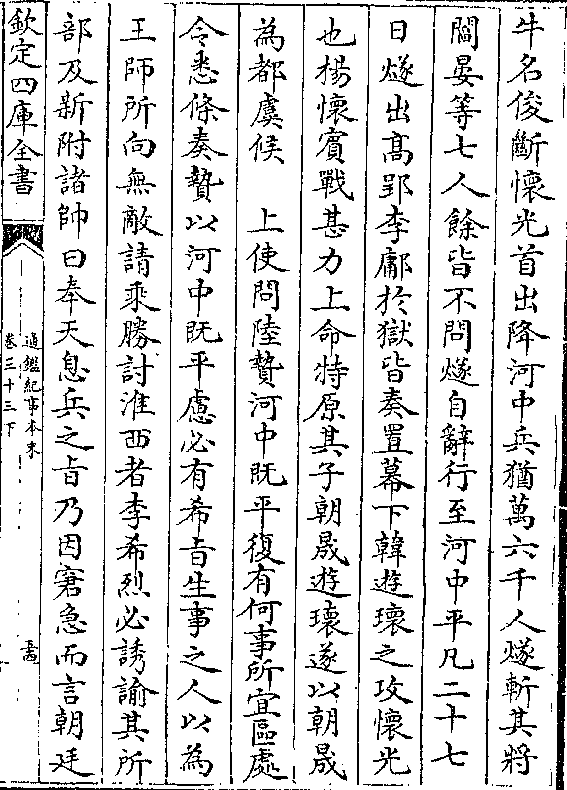 牛名俊斷懷光首出降河中兵猶萬六千人燧斬其將
閻晏等七人餘皆不問燧自辭行至河中平凡二十七
日燧出高郢李鄘於獄皆奏置幕下韓遊瓌之攻懷光
也楊懷賓戰甚力上命特原其子朝晟遊瓌遂以朝晟
為都虞候　上使問陸贄河中既平復有何事所宜區處
令悉條奏贄以河中既平慮必有希旨生事之人以為
王師所向無敵請乘勝討淮西者李希烈必誘諭其所
部及新附諸帥曰奉天息兵之旨乃因窘急而言朝廷
欽定四庫全書
通鑑紀事本末
卷三十三下